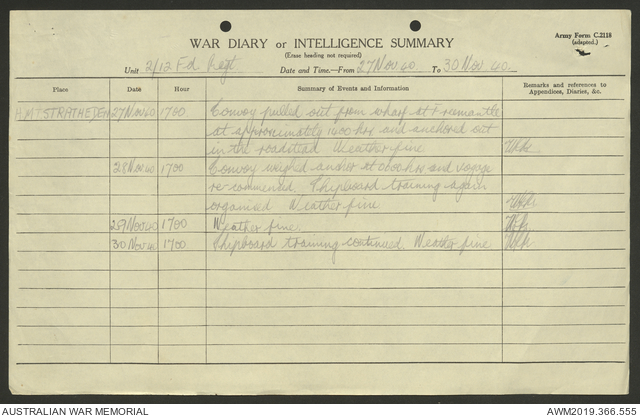 Army Form C.2118
(adapted.)
WAR DIARY or INTELLIGENCE SUMMARY
(Erase heading not required)
Unit 2/12 Fd Regt Date and Time.—From 27 Nov 40 To 30 Nov 40
Place Date Hour Summary of Events and Information Remarks and references to Appendices, Diaries, &c.
HMT STRATHEDEN 27 Nov 40 1700 Convoy pulled out from wharf at Fremantle
at approximately 1400 hrs and anchored out
in the roadstead Weather fine
28 Nov 40 1700 Convoy weighed anchor at hrs and voyage
re-commenced. Shipboard training again
organised Weather fine
29 Nov 40 1700 Weather fine.
30 Nov 40 1700 Shipboard training continued. Weather fine
AUSTRALIAN WAR MEMORIAL AWM2019.366.555